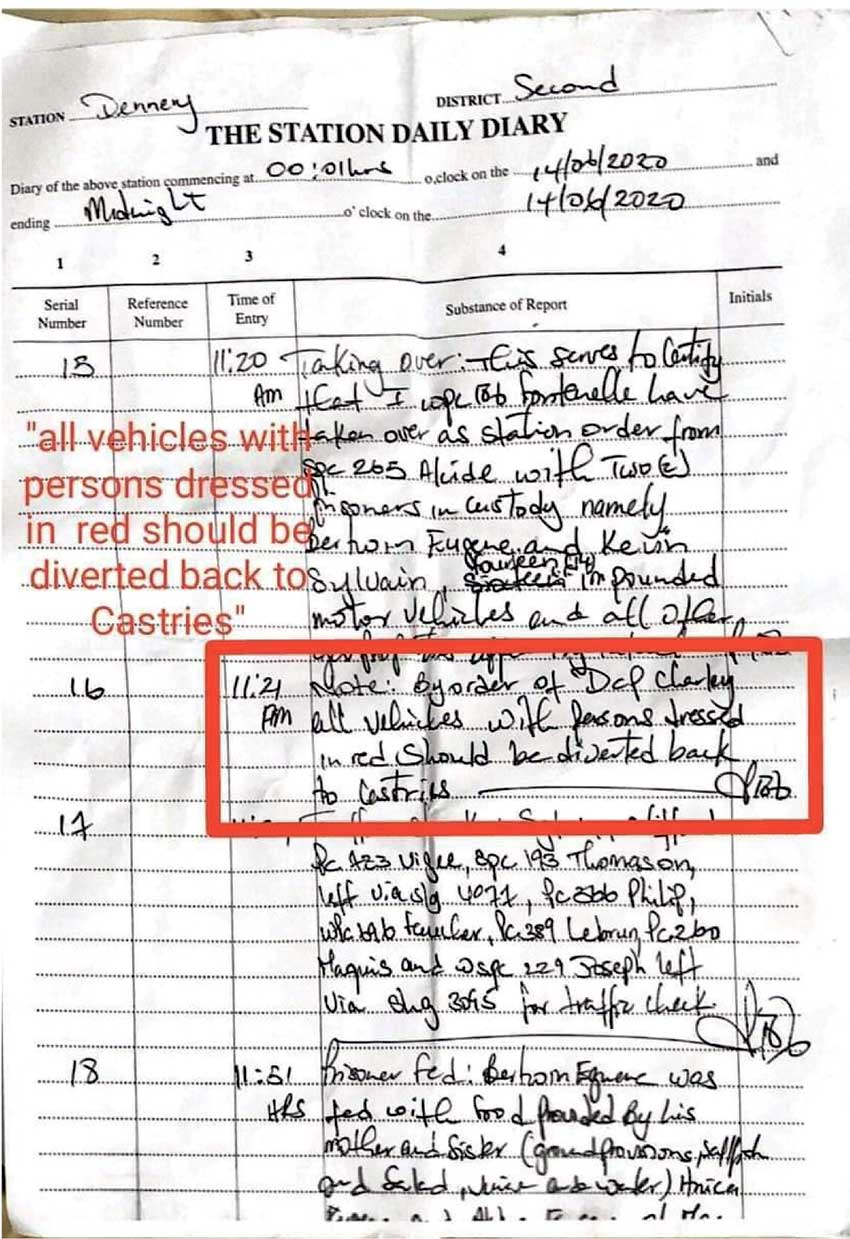 STATION Dennery DISTRICT Second
THE STATION DAILY DIARY
Diary of the above station commencing at 00:01hrs o,clock on the 14/06/2020 and
ending Midnight o' clock on the 14/06/2020
1 2 3 4
Serial Number Reference Number Time of Entry Substance of Report Initials
15 11:20 Taking over: This serves to Certify
Am that I wpc Fontenelle have
taken over as station order from
Spc 265 Alcide with Two (2)
Prisoners in custody namely
Berhom Eugene and Kevin
Fourteen (14)
Sylvain, Sixteen impounded
motor vehicles and all other
"all vehicles with
persons dressed
in red should be
diverted back to
Castries"
16 11:21 Note: By order of Dcp Charley
AM all vehicles with persons dressed
in red should be diverted back
to Castries
17
Pc 423 Vigee, Spc 193 Thomason,
left via slg 4071, Pc 266 Philip,
Wpc Faucher, Pc.389 Lebrun, Pc.260
Maquis and wspc 229 Joseph left
via slg 3095 for traffic check
18 11:51 Prisoner Fed: Berhom Eugene was
HRS fed with food provided By his
mother and Sister (ground provisions, saltfish
and Salad, Juice and water)